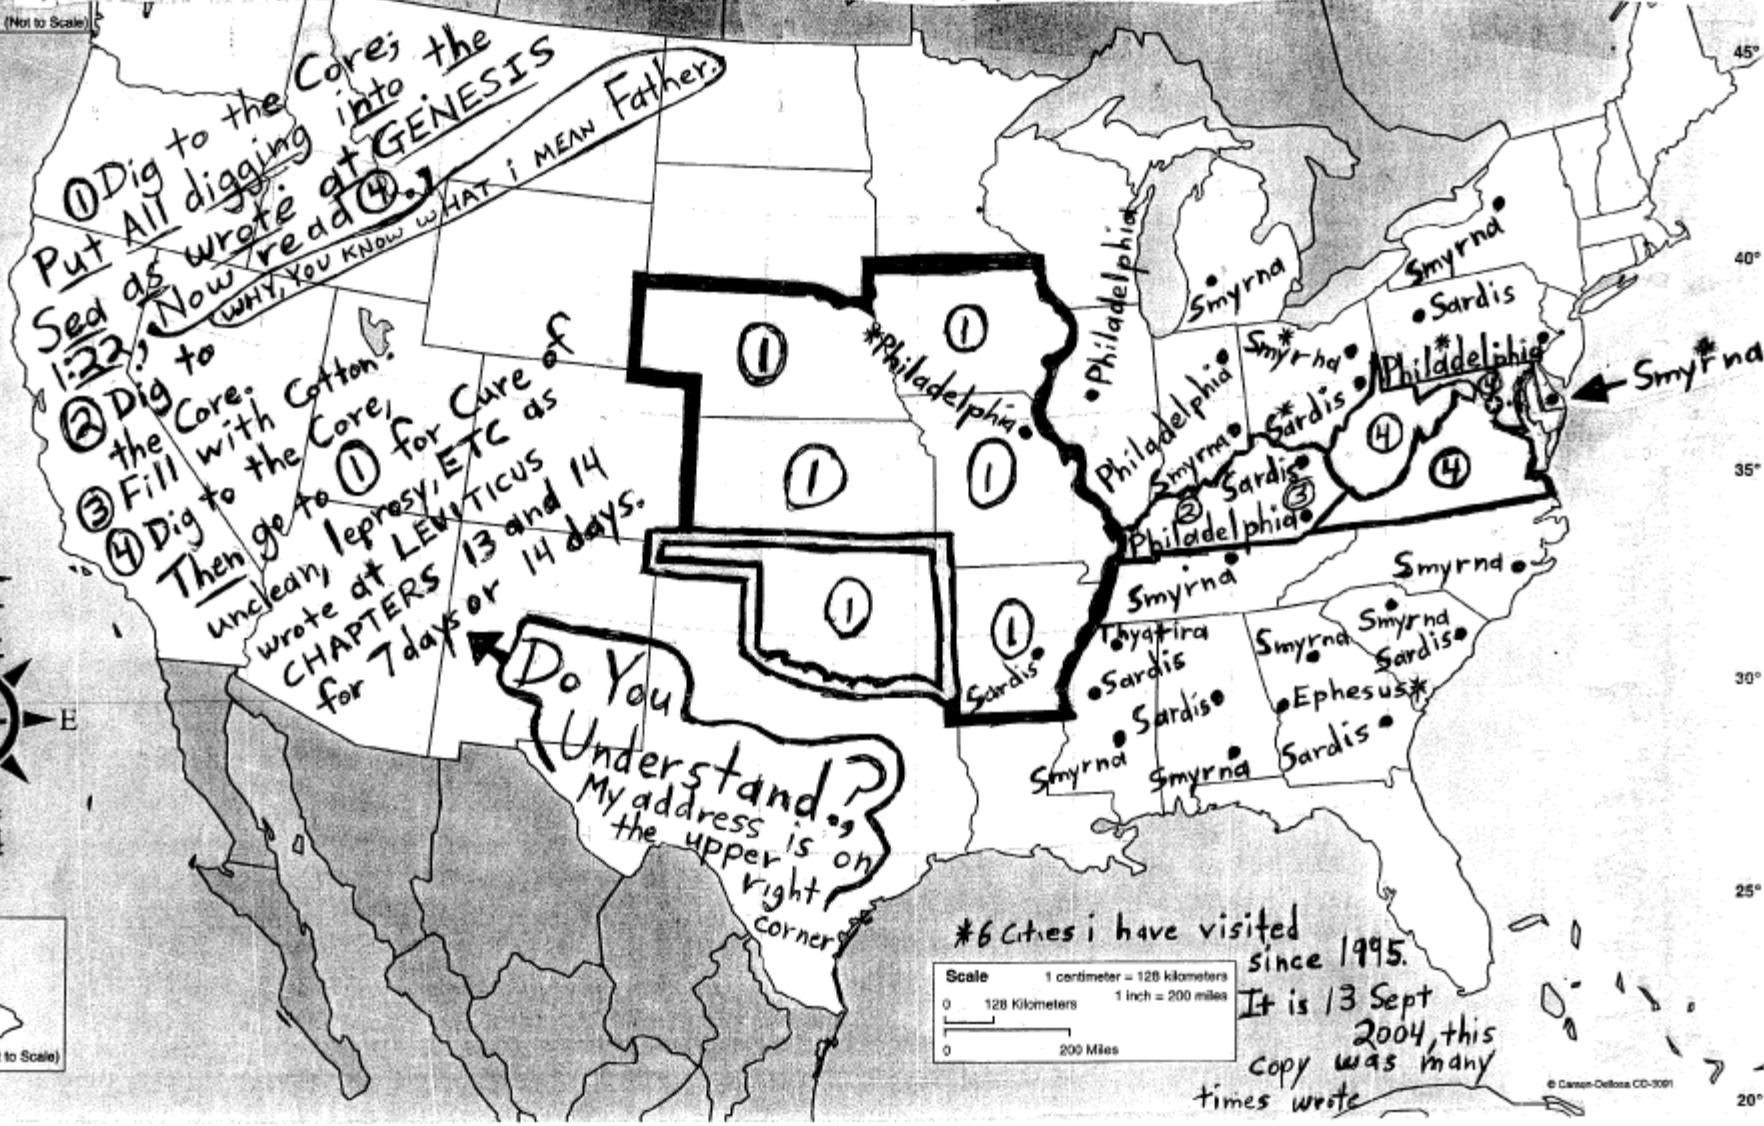 (Not to Scale)
① Dig to the Core;
Put All digging into the
Sea as wrote at GENESIS
1:22; Now read ④.
WHY, YOU KNOW WHAT i MEAN Father.
② Dig to
the Core.
③ Fill with Cotton.
④ Dig to the Core,
Then go to ① for Cure of
unclean, leprosy, ETC as
wrote at LEVITICUS
CHAPTERS 13 and 14
for 7 days or 14 days.
Do You
Understand?
My address is on
the upper
right
corner
E
to Scale)
①
①
①
①
①
①
*Philadelphia
Sardis
Philadelphia
Smyrna
Smyrna
Sardis
Philadelphia
Smyrna*
Philadelphia
Smyrna
Smyrna
Sardis
②
Sardis
③
Philadelphia
④
④
④
Smyrna
Smyrna
Thyatira
Sardis
Sardis
Smyrna
Smyrna
Smyrna
Smyrna
Sardis
Ephesus*
Sardis
45°
40°
35°
30°
25°
20°
*6 Cities i have visited
since 1995.
It is 13 Sept
2004, this
copy was many
times wrote
Scale
1 centimeter = 128 kilometers
1 inch = 200 miles
0 128 Kilometers
0 200 Miles
© Carson-Dellosa CD-3091